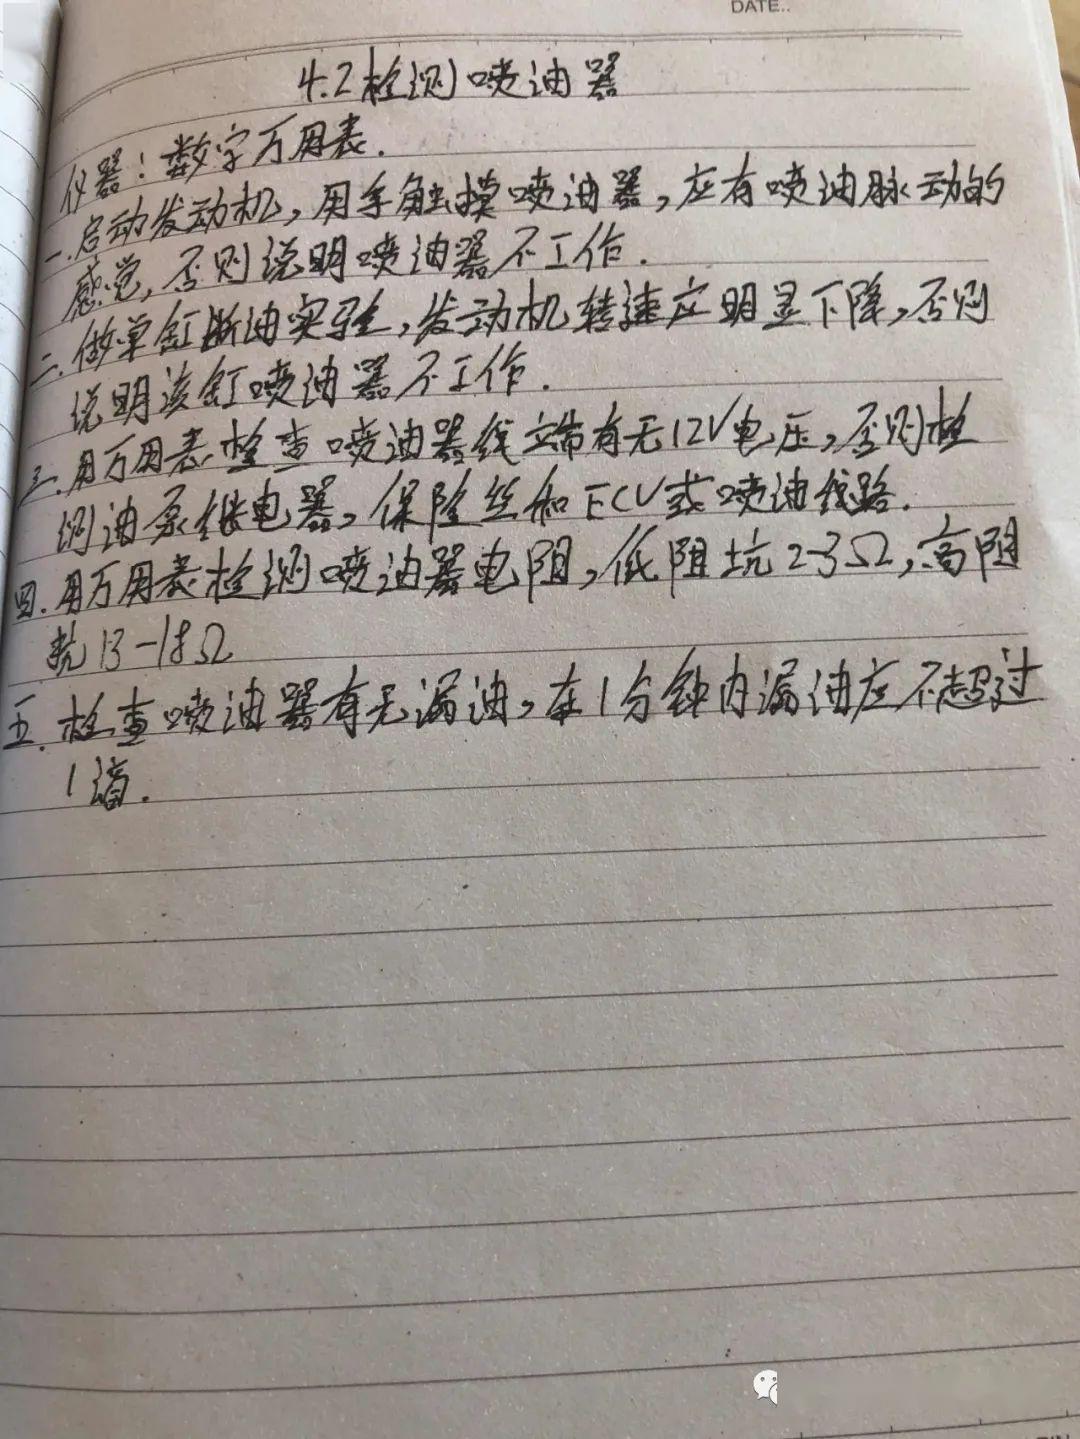 DATE..
4.2检测喷油器
仪器:数字万用表.
一.启动发动机,用手触摸喷油器,应有喷油脉动的
感觉,否则说明喷油器不工作.
二.做单缸断油实验,发动机转速应明显下降,否则
说明该缸喷油器不工作.
三.用万用表检查喷油器线端有无12V电压,否则检
测油泵继电器,保险丝和ECU或喷油线路.
四.用万用表检测喷油器电阻,低阻坑2-3Ω,高阻
抗13-18Ω
五.检查喷油器有无漏油,在1分钟内漏油应不超过
1滴.